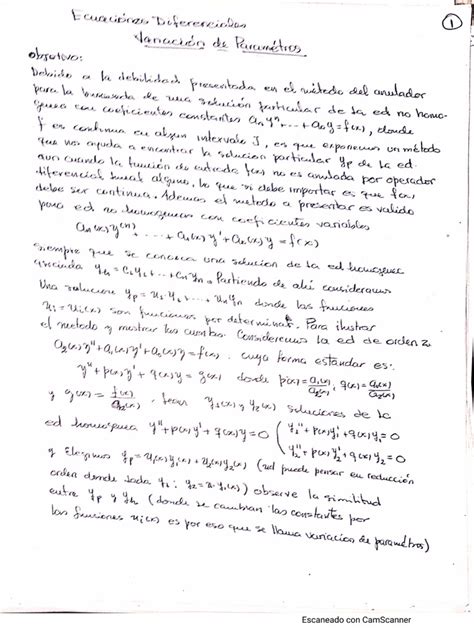 Ecuaciones Diferenciales
Variación de Parámetros
1
objetivo:
Debido a la debilidad presentada en el método del anulador
para la busqueda de una solución particular de la ed no homo-
genea con coeficientes constantes aₙyⁿ+...+a₀y=f(x), donde
f es continua en algun intervalo I, es que exponemos un método
que nos ayuda a encontrar la solucion particular yp de la ed
aun cuando la función de entrada f(x) no es anulada por operador
diferencial lineal alguno, lo que si debe importar es que f(x)
debe ser continua. Ademas el metodo a presentar es valido
para ed no homogeneas con coeficientes variables
aₙ(x)y⁽ⁿ⁾+...+a₁(x)y'+a₀(x)y=f(x)
siempre que se conozca una solucion de la ed homogenea
asociada yh=c₁y₁+...+cₙyₙ. Partiendo de ahí consideramos
Una solucion yp=u₁y₁+...+uₙyₙ donde las funciones
uᵢ=uᵢ(x) son funciones por determinar. Para ilustrar
el metodo y mostrar las cuentas. Consideremos la ed de orden 2:
a₂(x)y''+a₁(x)y'+a₀(x)y=f(x). cuya forma estandar es:
y''+p(x)y'+q(x)y=g(x) donde p(x)=a₁(x)/a₂(x), q(x)=a₀(x)/a₂(x)
y g(x)=f(x)/a₂(x). Sean y₁(x) y y₂(x) soluciones de la
ed homogenea y''+p(x)y'+q(x)y=0 (y₁''+p(x)y₁'+q(x)y₁=0
y₂''+p(x)y₂'+q(x)y₂=0)
y Elegimos yp=u₁(x)y₁(x)+u₂(x)y₂(x) (ud puede pensar en reducción
orden donde dada y₁: y₂=u y₁(x)) observe la similitud
entre yp y yh (donde se cambian las constantes por
las funciones uᵢ(x) es por eso que se llama variacion de parametros)
Escaneado con CamScanner